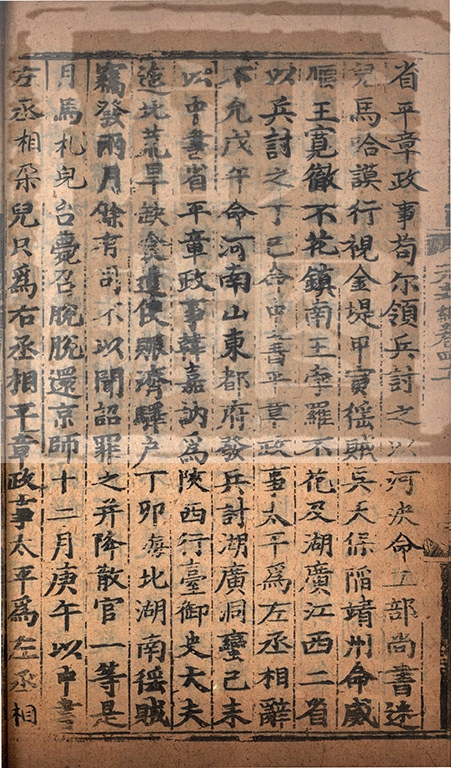 省平章政事苟尔領兵討之以河决命工部尚書迷
兒馬哈謨行視金堤甲寅徭賊吳天保陷靖州命威
順王寬徹不花鎮南王孛羅不花及湖廣江西二省
以兵討之丁巳命中書平章政事太平爲左丞相辭
不允戊午命河南山東都府發兵討湖廣洞蠻己未
以中書省平章政事韓嘉訥爲陝西行臺御史大夫
迤北荒旱缺食遣使賑濟驛戶丁卯海北湖南徭賊
竊發兩月餘有司不以聞詔罪之并降散官一等是
月馬札兒台薨召脫脫還京師十二月庚午以中書
左丞相朶兒只爲右丞相平章政事太平爲左丞相